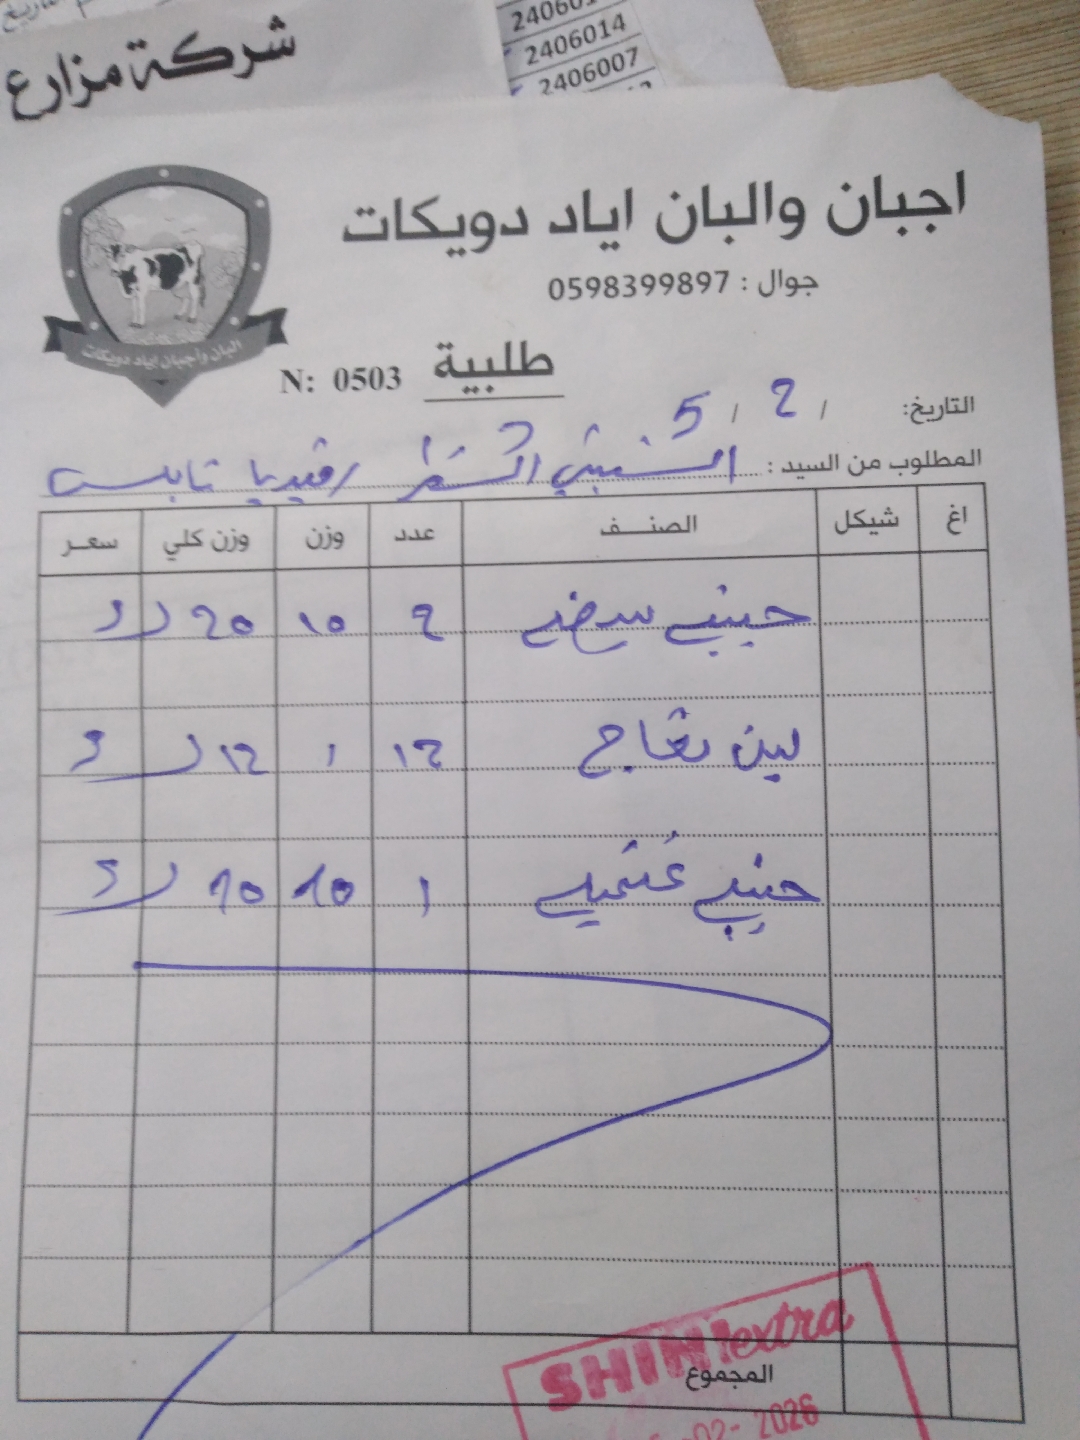 شركة مزارع
2406014
2406007
اجبان والبان اياد دويكات
جوال : 0598399897
البان واجبان اياد دويكات
N: 0503 طلبية
التاريخ: / 2 / 5
المطلوب من السيد : الشيني اكسترا رفيديا نابلس
اغ شيكل الصنف عدد وزن وزن كلي سعر
جبنة بيضة 2 10 20 كغ
لبن نعاج 12 1 12 كغ
جبنة 1 10 10 كغ
المجموع
SHINI extra
-02- 2026